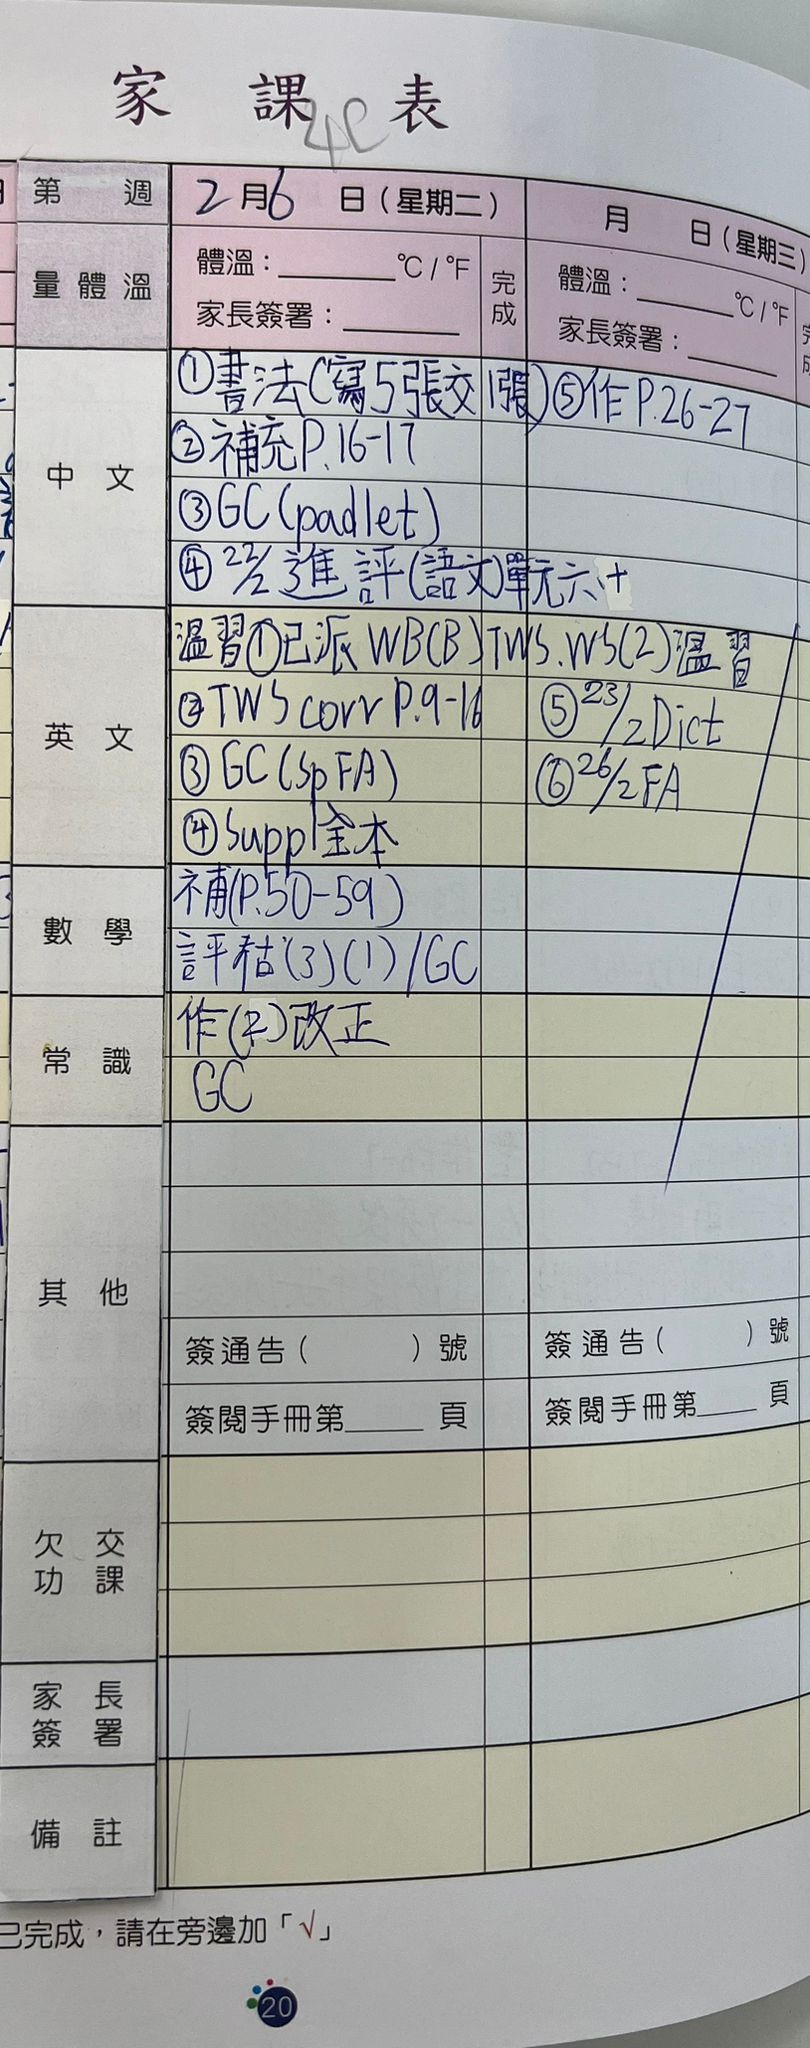 家課表
4C
第 週
2月6日(星期二)
月 日(星期三)
量體溫
體溫:______℃/℉
家長簽署:______
完成
體溫:______℃/℉
家長簽署:______
中文
①書法(寫5張交1張)
⑤作P.26-27
②補充P.16-17
③GC(padlet)
④22/2進評(語文)單元六+
英文
溫習①已派WB(B)TWS.WS(2)溫習
②TWS corr P.9-16
⑤23/2Dict
③GC(Sp FA)
⑥26/2FA
④Suppl全本
數學
補(P.50-59)
評估(3)(1)/GC
常識
作(2)改正
GC
其他
簽通告( )號
簽通告( )號
簽閱手冊第____頁
簽閱手冊第____頁
欠交功課
家長簽署
備註
已完成,請在旁邊加「√」
20